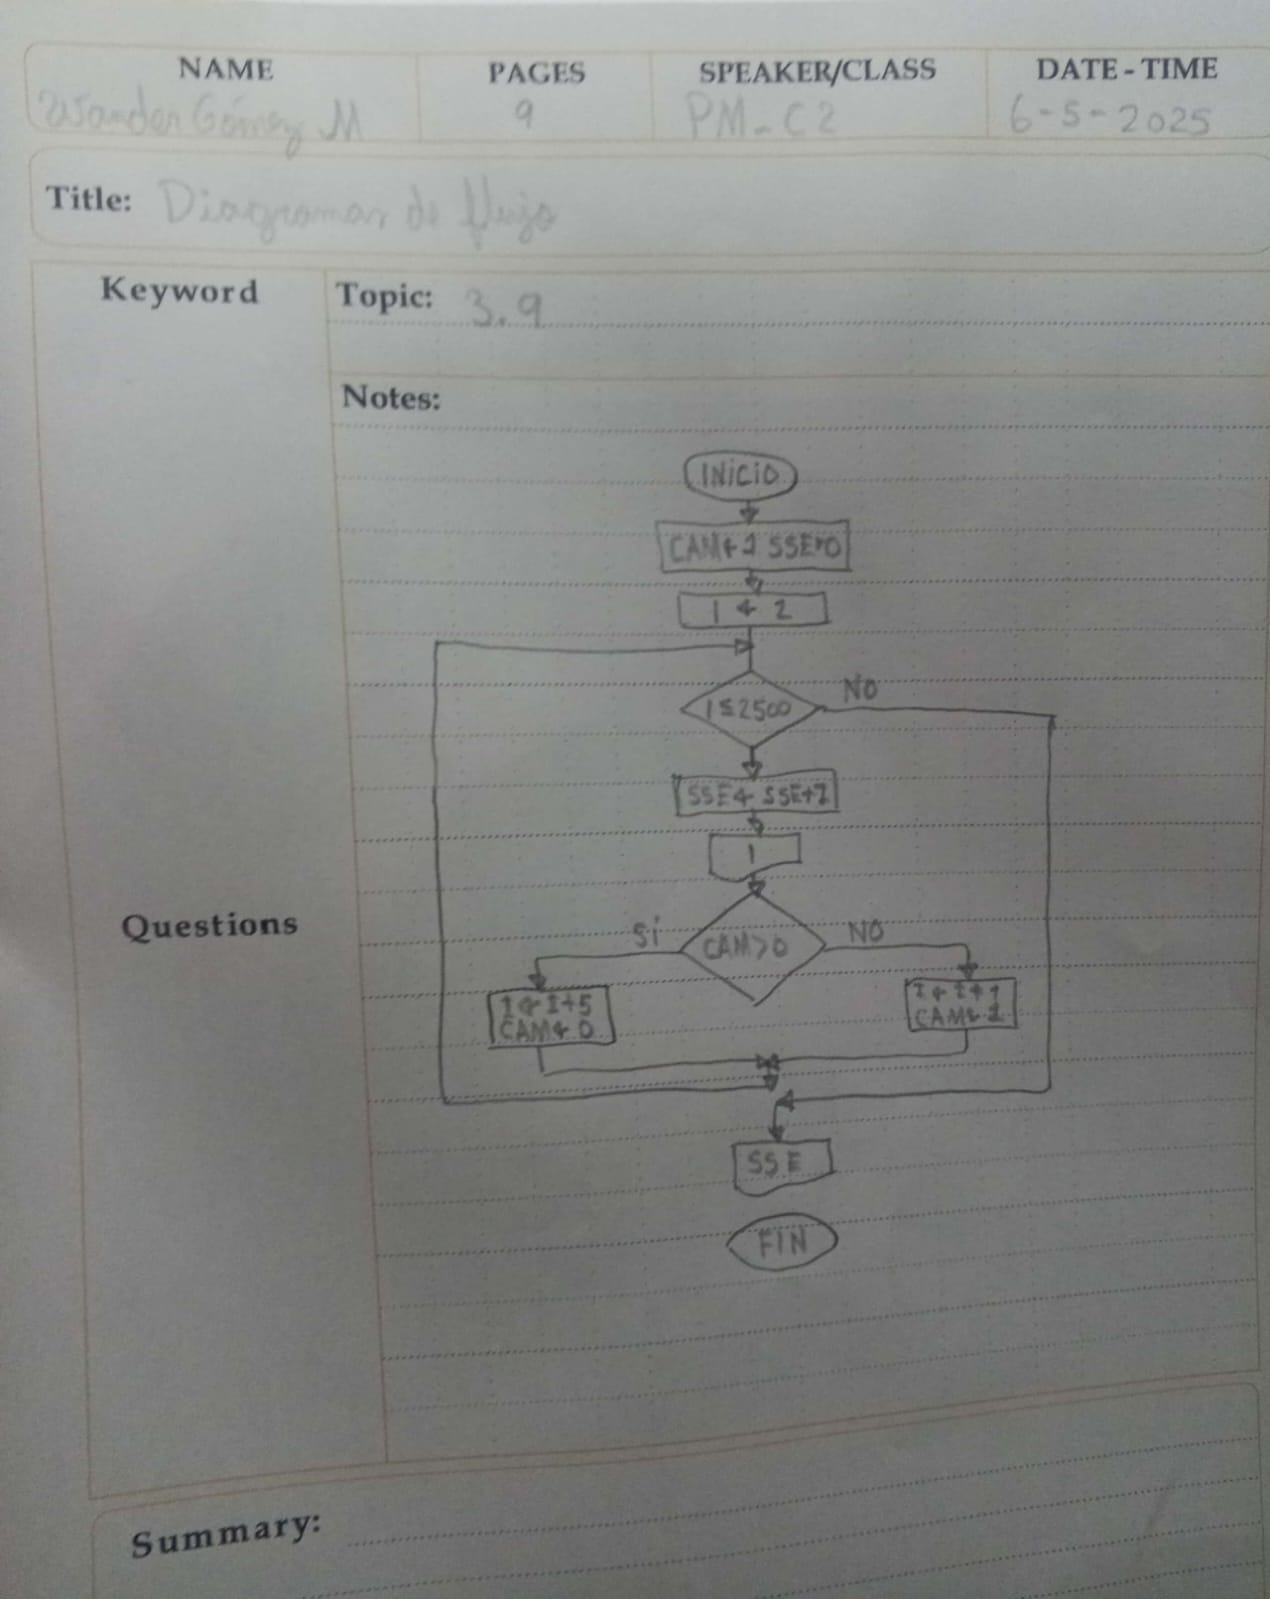 NAME PAGES SPEAKER/CLASS DATE - TIME
Wander Gómez M 9 PM-C2 6-5-2025
Title: Diagramas de flujo
Keyword
Topic: 3.9
Notes:
INiCiO
CAM← 1 SSE←0
I ← 2
I≤2500 NO
SSE← SSE+I
I
SÍ CAM>0 NO
I← I+5 I← I+
CAM← 0 CAM← 1
Questions
SSE
FIN
Summary: